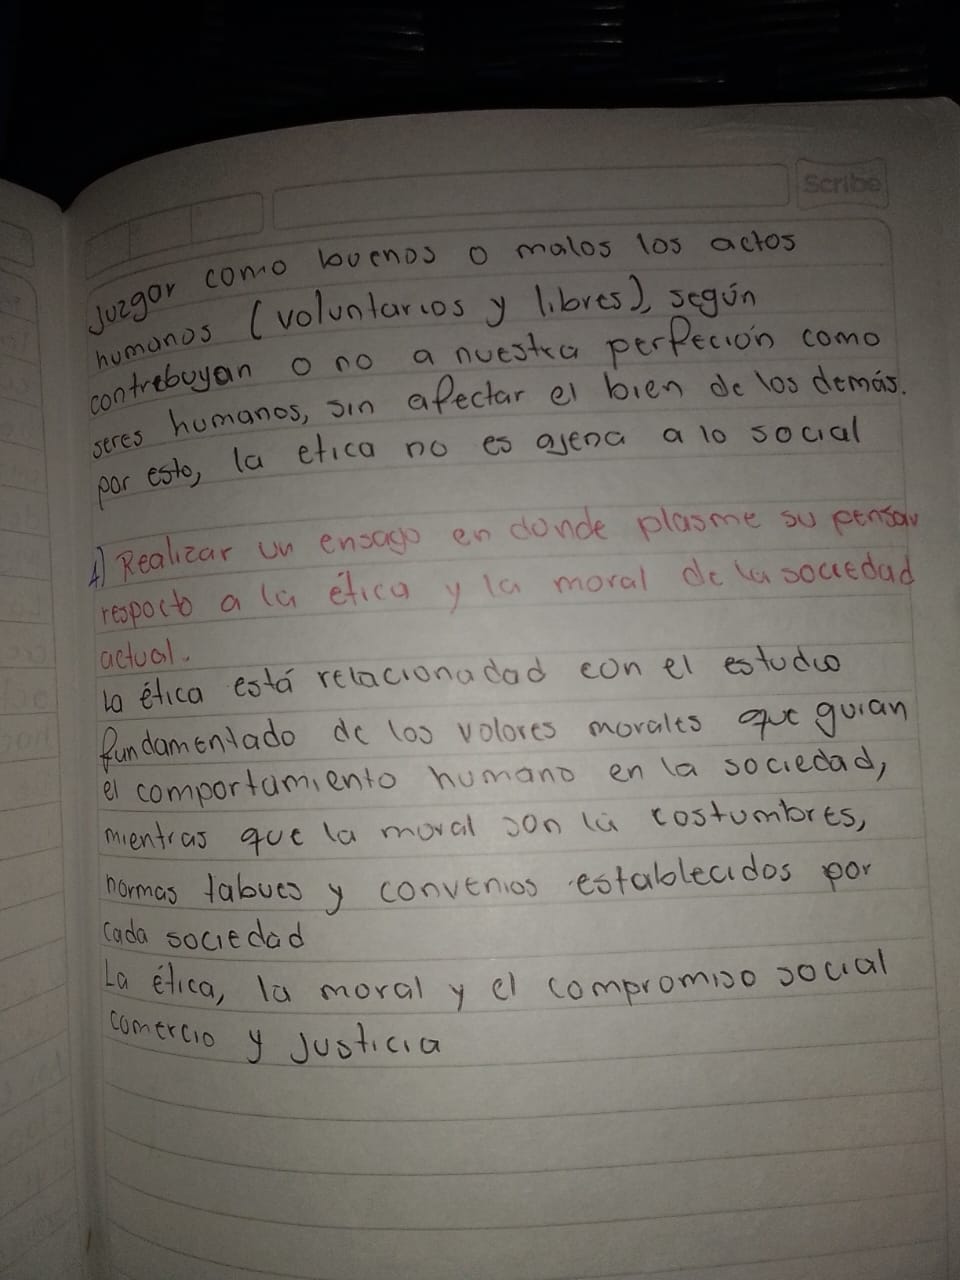 Scribe
Juzgar como buenos o malos los actos
humanos (voluntarios y libres), según
contrebuyan o no a nuestra perfeción como
seres humanos, sin afectar el bien de los demás.
por esto, la etica no es ajena a lo social
4) Realizar un ensayo en donde plasme su pensar
respecto a la ética y la moral de la sociedad
actual.
La ética está relacionadad con el estudio
fundamentado de los valores morales que guian
el comportamiento humano en la sociedad,
mientras que la moral son la costumbres,
normas tabues y convenios establecidos por
cada sociedad
La ética, la moral y el compromiso social
comercio y justicia